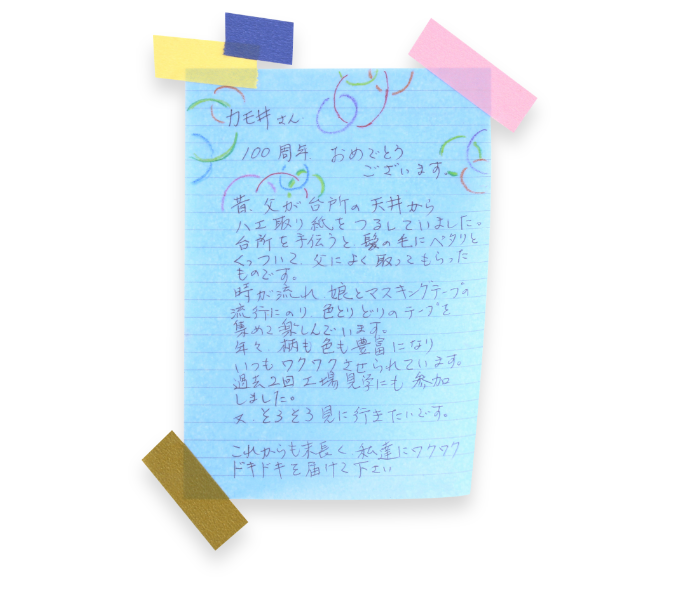 カモ井さん
100周年 おめでとう
ございます。
昔、父が台所の天井から
ハエ取り紙をつるしていました。
台所を手伝うと、髪の毛にベタリと
くっついて、父によく取ってもらった
ものです。
時が流れ、娘とマスキングテープの
流行にのり、色とりどりのテープを
集めて楽しんでいます。
年々、柄も色も豊富になり
いつもワクワクさせられています。
過去2回工場見学にも参加
しました。
又、そろそろ見に行きたいです。
これからも末長く、私達にワクワク
ドキドキを届けて下さい